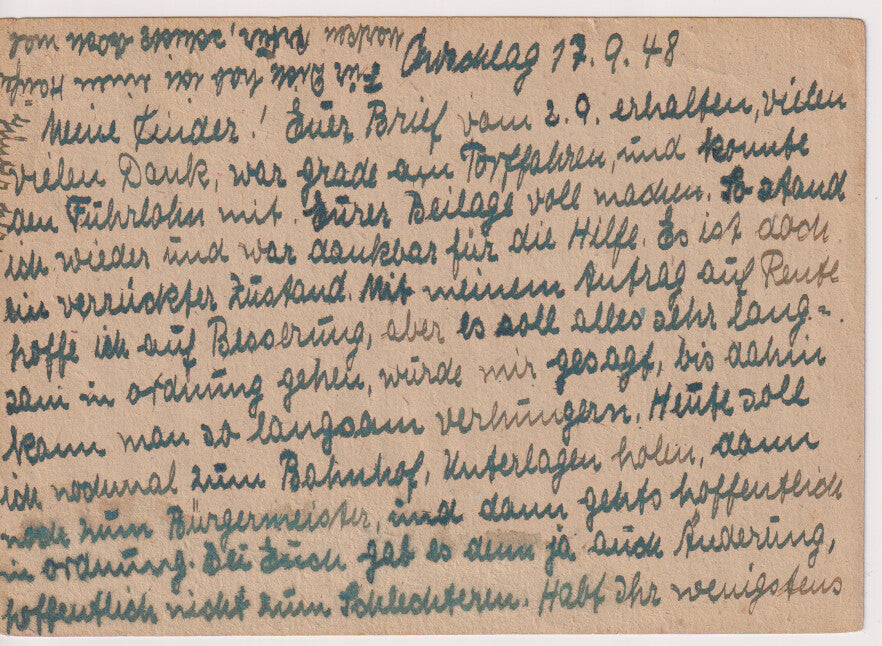 17. 9. 48
Meine Kinder! Euer Brief vom 2. 9. erhalten, vielen
vielen Dank, war grade am Torffahren, und konnte
den Fuhrlohn mit Eurer Beilage voll machen. So stand
ich wieder und war dankbar für die Hilfe. Es ist doch
ein verrückter Zustand. Mit meinem Antrag auf Rente
hoffe ich auf Besserung, aber es soll alles sehr lang=
sam in ordnung gehen, wurde mir gesagt, bis dahin
kann man so langsam verhungern. Heute soll
ich nochmal zum Bahnhof, Unterlagen holen, dann
noch zum Bürgermeister, und dann gehts hoffentlich
in ordnung. Bei Euch gab es denn ja auch Änderung,
hoffentlich nicht zum Schlechteren. Habt Ihr wenigstens